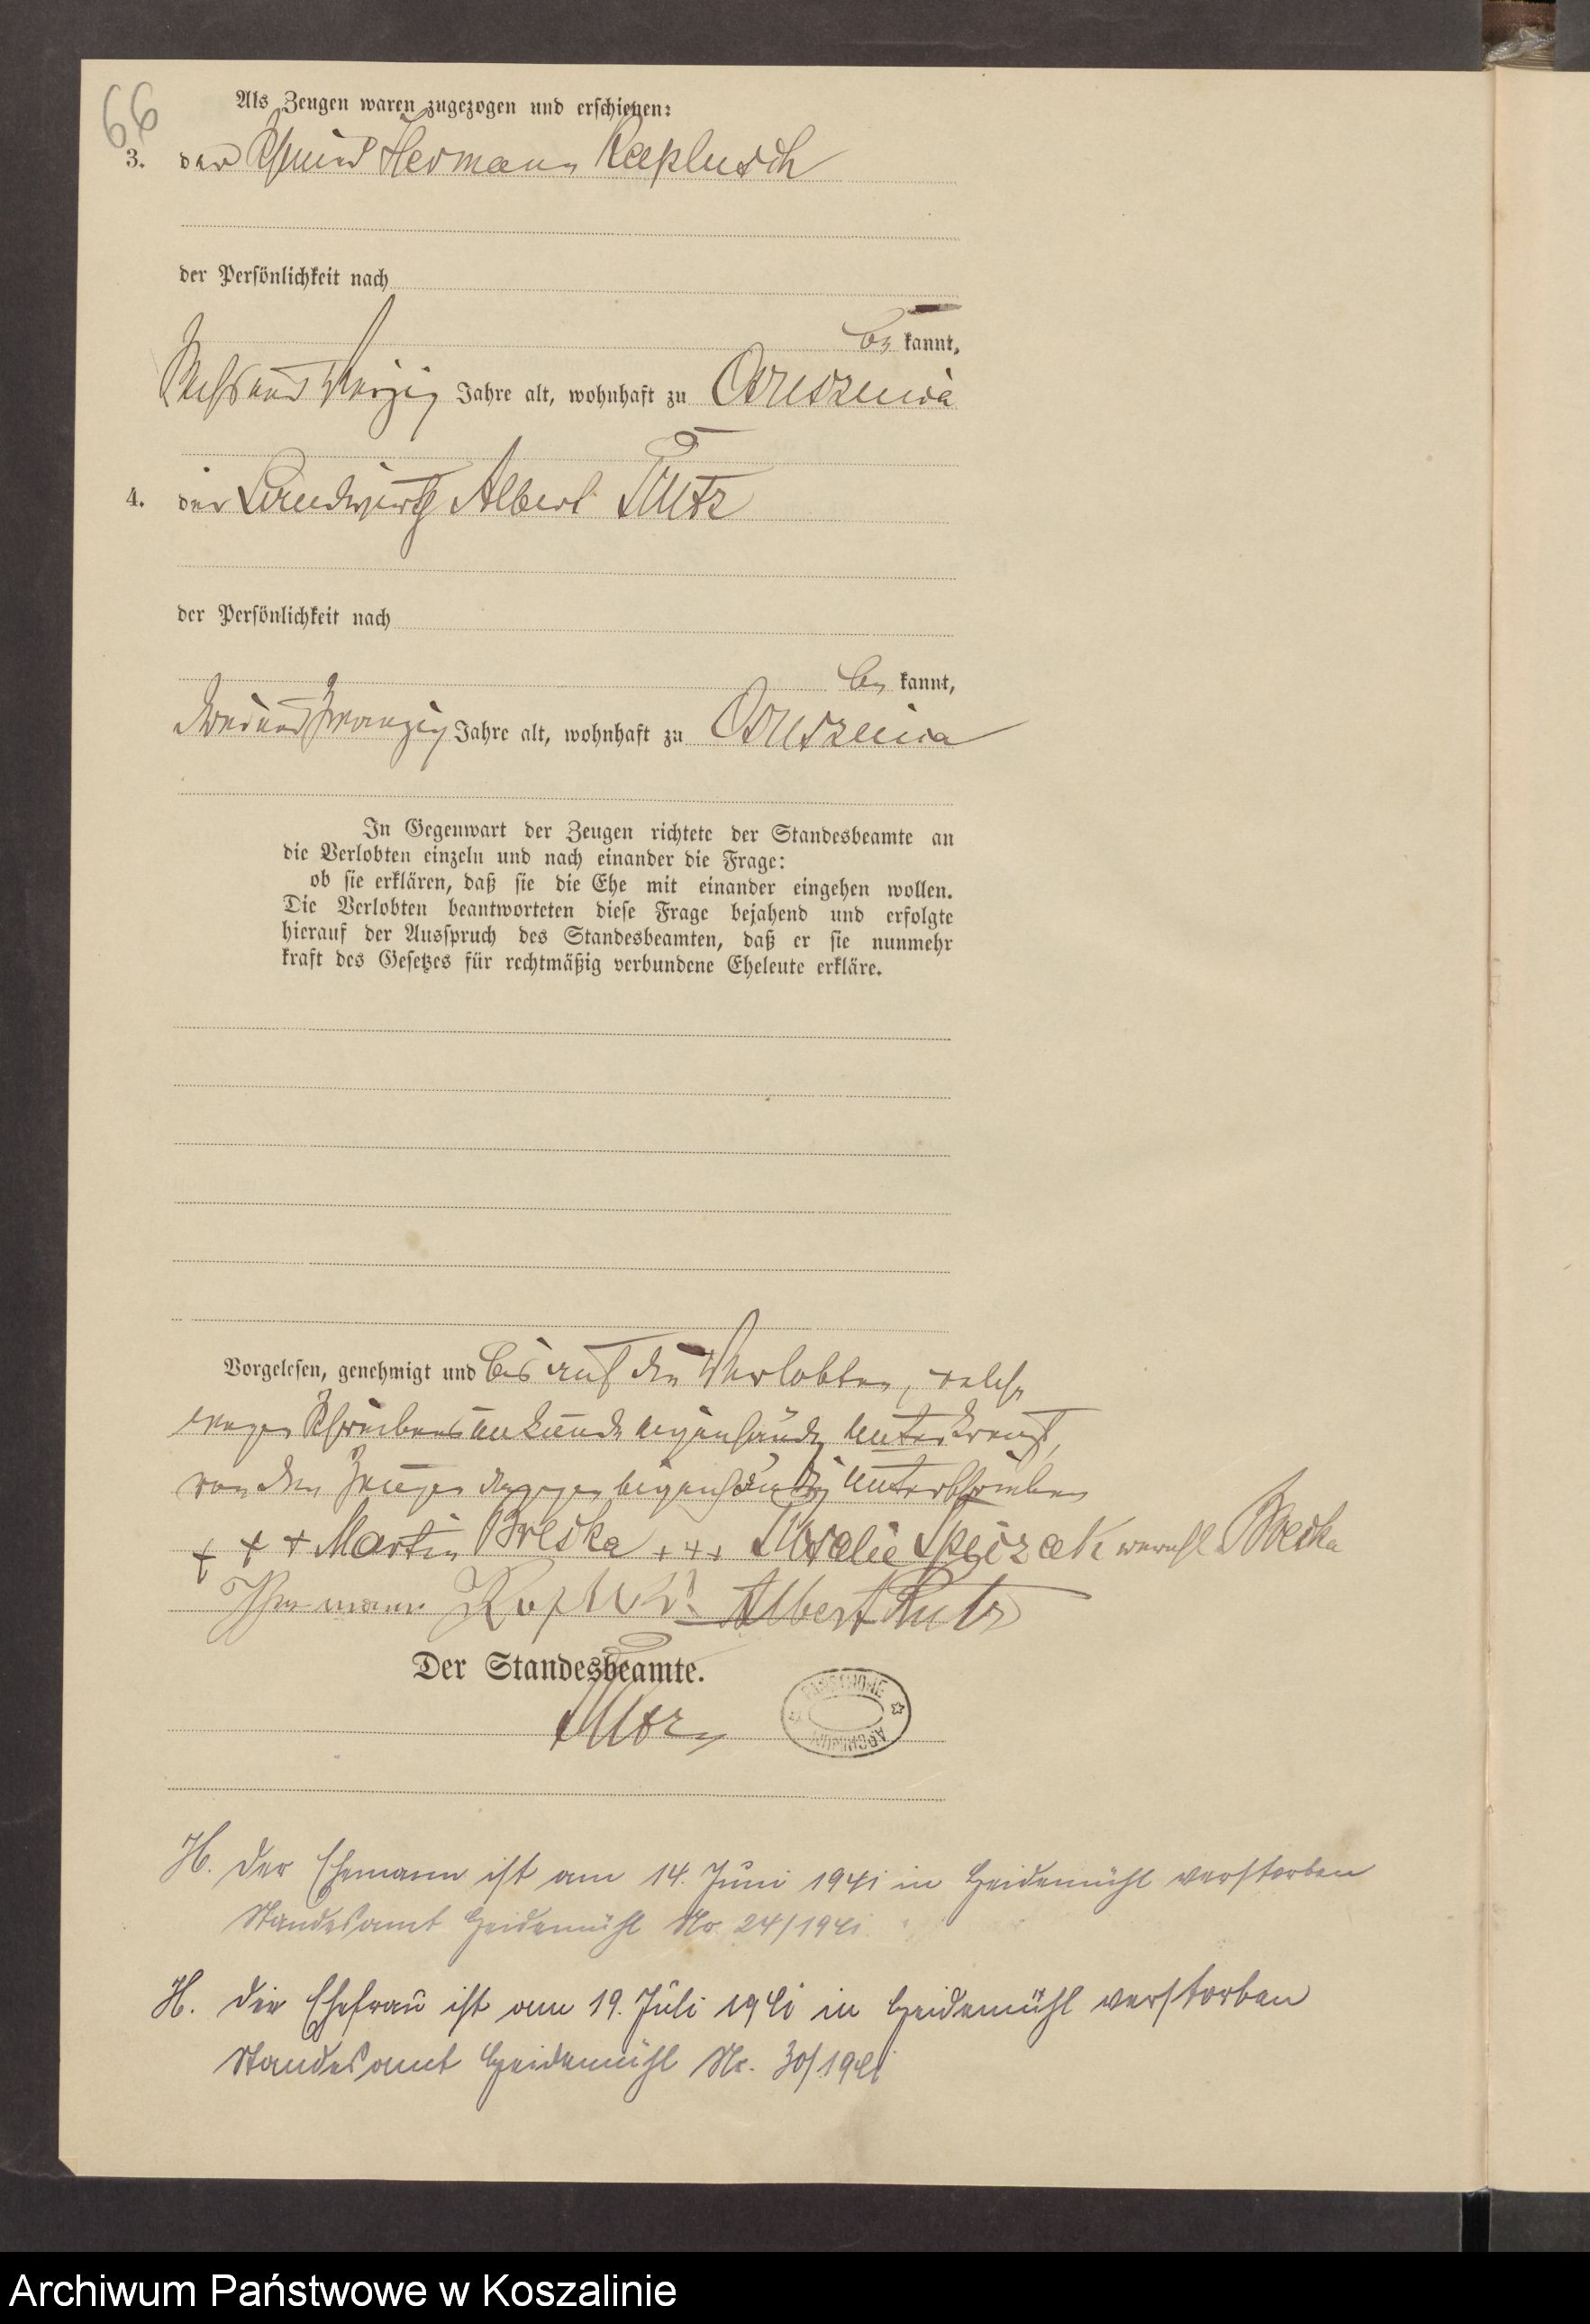 66
Als Zeugen waren zugezogen und erschienen:
3. der Schmied Hermann Kaplusch
der Persönlichkeit nach
be kannt,
Sechsundvierzig Jahre alt, wohnhaft zu Ossuszniça
4. der Landwirth Albert Rutz
der Persönlichkeit nach
be kannt,
zweiundzwanzig Jahre alt, wohnhaft zu
In Gegenwart der Zeugen richtete der Standesbeamte an
die Verlobten einzeln und nach einander die Frage:
ob sie erklären, daß sie die Ehe mit einander eingehen wollen.
Die Verlobten beantworteten diese Frage bejahend und erfolgte
hierauf der Ausspruch des Standesbeamten, daß er sie nunmehr
kraft des Gesetzes für rechtmäßig verbundene Eheleute erkläre.
Vorgelesen, genehmigt und bis auf den Verlobten, welche
wegen Schreibensunkunde eigenhändig unterkreuzt,
von den Zeugen dagegen eigenhändig unterschrieben
+ + + Martin Breska + + + Rosalie Speizak verehl Breska
Hermann Albert Rutz
Der Standesbeamte.
Rutz
PAŃSTWOWE ARCHIWUM
H. Der Ehemann ist am 14. Juni 1941 in Heidemühl verstorben
Standesamt Heidemühl No. 24/1941
H. Die Ehefrau ist am 19. Juli 1941 in Heidemühl verstorben
Standesamt Heidemühl Nr. 30/1941
Archiwum Państwowe w Koszalinie